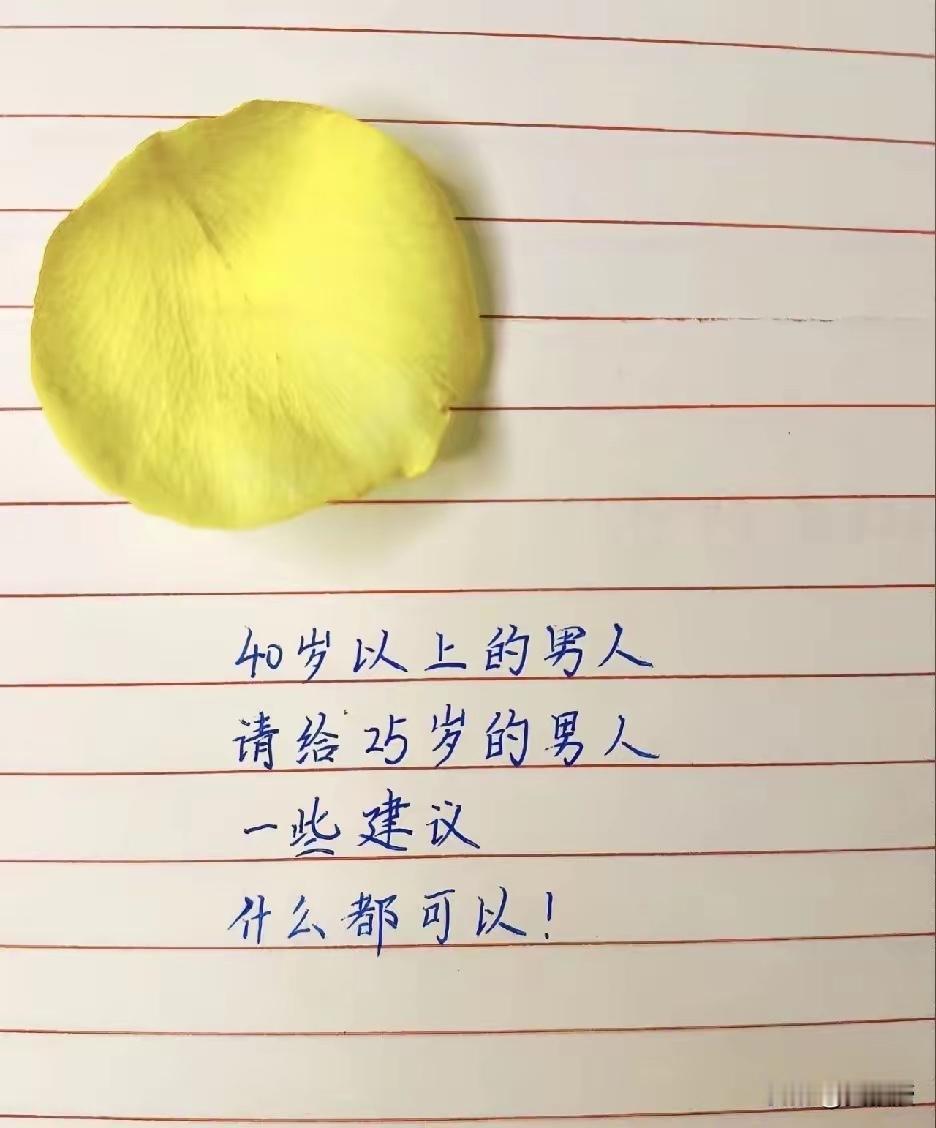 40岁以上的男人
请给25岁的男人
一些建议
什么都可以!